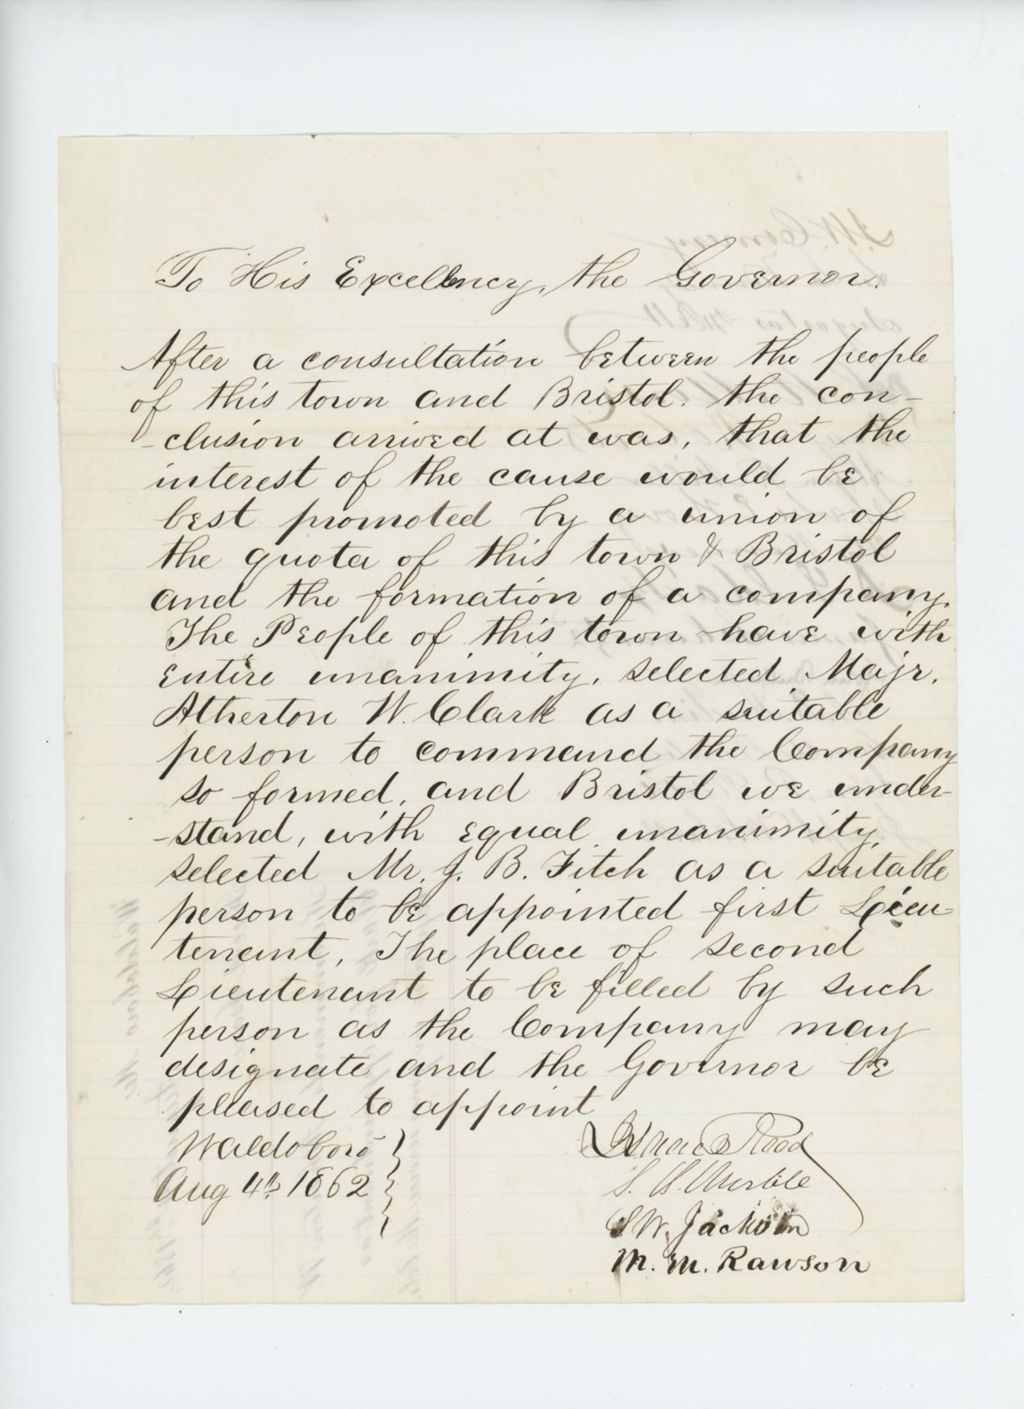 To His Excellency, the Governor.
After a consultation between the people
of this town and Bristol. the con-
-clusion arrived at was, that the
interest of the cause would be
best promoted by a union of
the quota of this town & Bristol
and the formation of a company.
The People of this town have with
entire unanimity, selected Majr.
Atherton W. Clark as a suitable
person to command the Company
so formed, and Bristol we under-
-stand, with equal unanimity
selected Mr. J. B. Fitch as a suitable
person to be appointed first Lieu-
tenant, The place of second
Lieutenant to be filled by such
person as the Company may
designate and the Governor be
pleased to appoint
Waldoboro
Aug 4th 1862
Isaac Reed
S. W. Jackson
M. M. Rawson